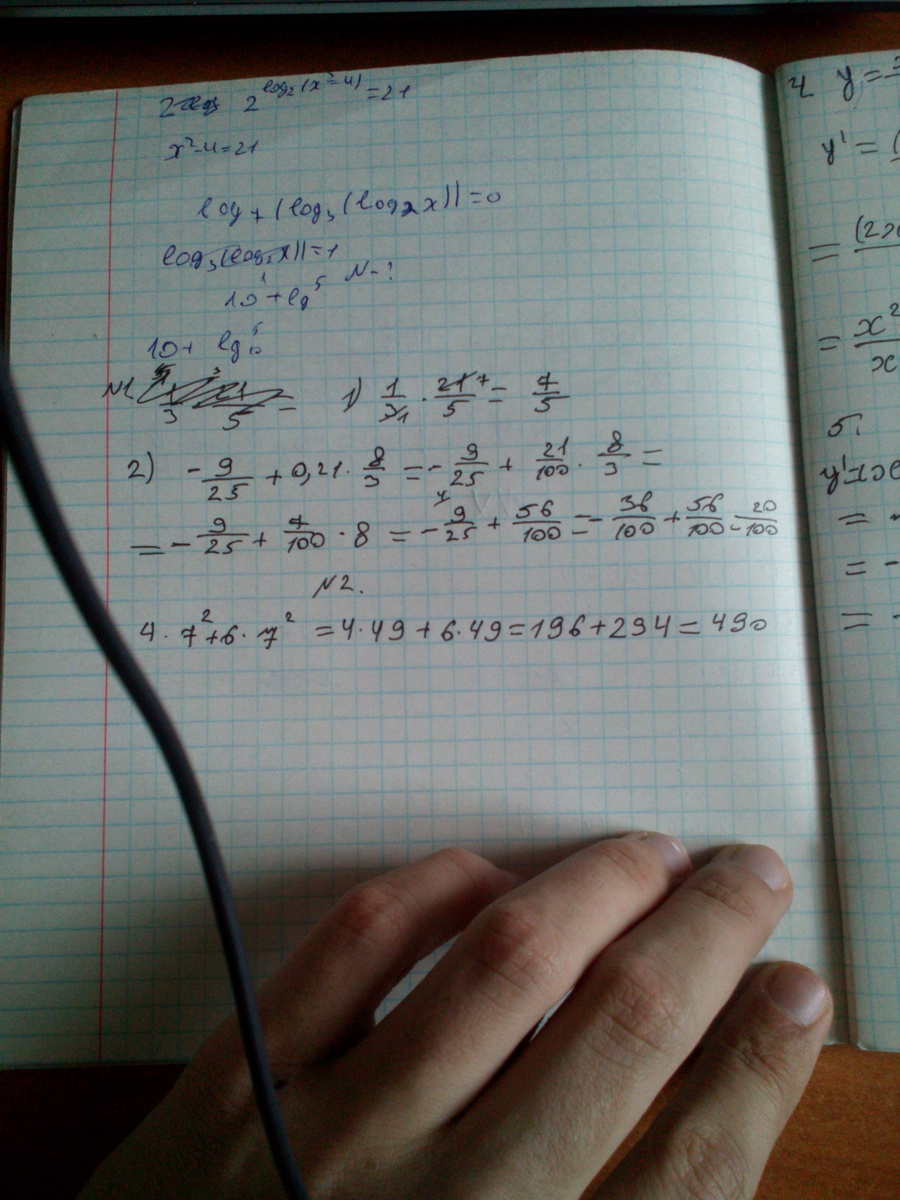 2^log₂(x²-4) = 21
x²-4=21
log₇(log₃(log₂x))=0
log₃(log₂x))=1
N-?
10¹+lg⁵
10+ lg
N1
3 5 =
1) 1/3 · 21/5 = 7/5
2) -9/25 + 0,21 · 8/3 = -9/25 + 21/100 · 8/3 =
= -9/25 + 7/100 · 8 = -9/25 + 56/100 = -36/100 + 56/100 = 20/100
N2.
4 · 7² + 6 · 7² = 4·49 + 6·49 = 196 + 294 = 490
4 y =
y' = (
= (2x
= x²/x
5.
y'
= -
= -
= -